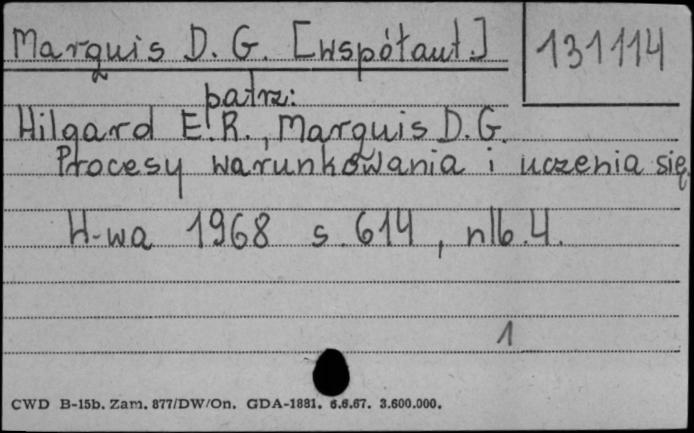 Marquis D. G. [współaut.]
131114
patrz:
Hilgard E. R., Marquis D. G.
Procesy warunkowania i uczenia się.
W-wa 1968 s. 614, nlb. 4.
1
CWD B-15b. Zam. 877/DW/On. GDA-1881. 6.6.67. 3.600.000.